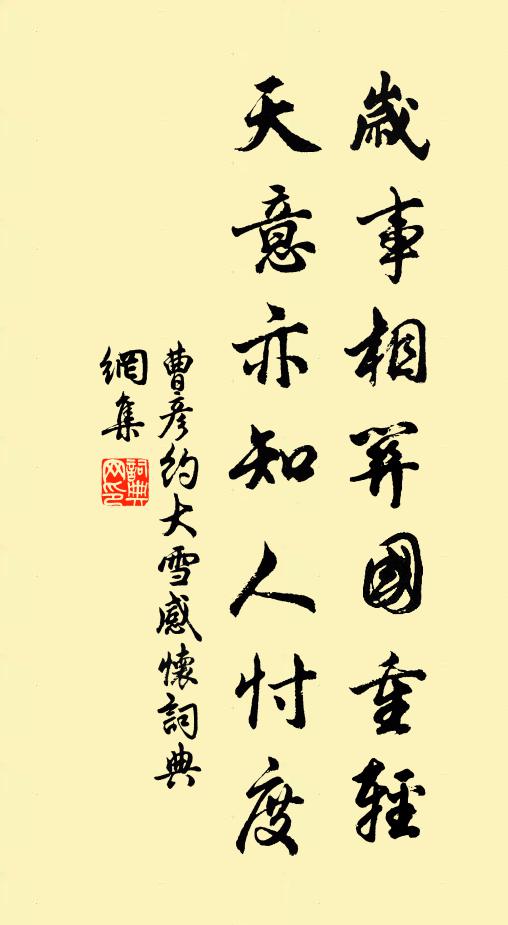 歲事相關國重輕
天意亦知人忖度
曹彥約大雪感懷詞典
網集
詞典網印